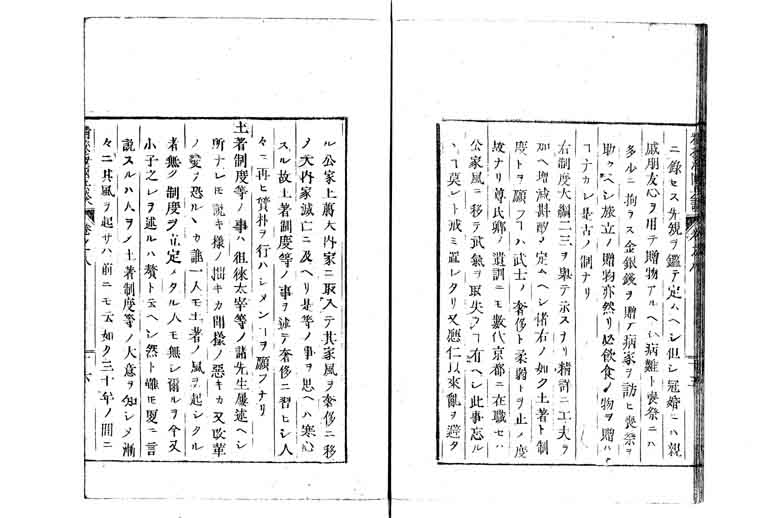 ニ録セス先規ヲ鑑テ定ムヘシ但シ冠婚ニハ親
戚朋友心ヲ用テ贈物アルヘシ病難ト喪祭ニハ
多少ニ拘ラス金銀錢ヲ贈テ病家ヲ訪ヒ喪祭ヲ
助クヘシ旅立ノ贈物亦然リ必飲食ノ物ヲ贈ルハ
ヿナカレ是古ノ制ナリ
右制度大綱二三ヲ擧テ示スナリ精詳ニ工夫ヲ
加ヘ増減斟酌シ定ムヘシ偖右ノ如ク土著ト制
度トヲ願フヿハ武士ノ奢侈ト柔弱トヲ止ノ度
故ナリ尊氏卿ノ遺訓ニモ數代京都ニ在職セハ
公家風ニ移テ武氣ヲ取失フヿ有ヘシ此事忘ル
ヽヿ莫レト戒ミ置レタリ又應仁以來亂ヲ避タ
ル公家上﨟大内家ニ取入テ其家風ヲ奢侈ニ移
ノ大内家滅亡ニ及ヘリ是等ノ事ヲ思ヘハ寒心
スル故土著制度等ノ事ヲ述テ奢侈ニ習ヒシ人
々ニ再ヒ質朴ヲ行ハシメンヿヲ願フナリ
土著制度等ノ事ハ徂徠太宰等ノ諸先生屢述ヘシ
所ナレモ説キ様ノ拙キカ聞様ノ惡キカ又改革
ノ變ヲ恐ルヽカ誰一人モ土著ノ風ヲ起シタル
者無ク制度ヲ立定メタル人モ無シ爾ルヲ今又
小子之レヲ述ルハ贅ト云ヘシ然ト雖モ屢ニ言
説スルハ人ヲノ土著制度等ノ大意ヲ知シメ漸
々ニ其風ヲ起サハ前ニモ云如ク三十年ノ間ニ